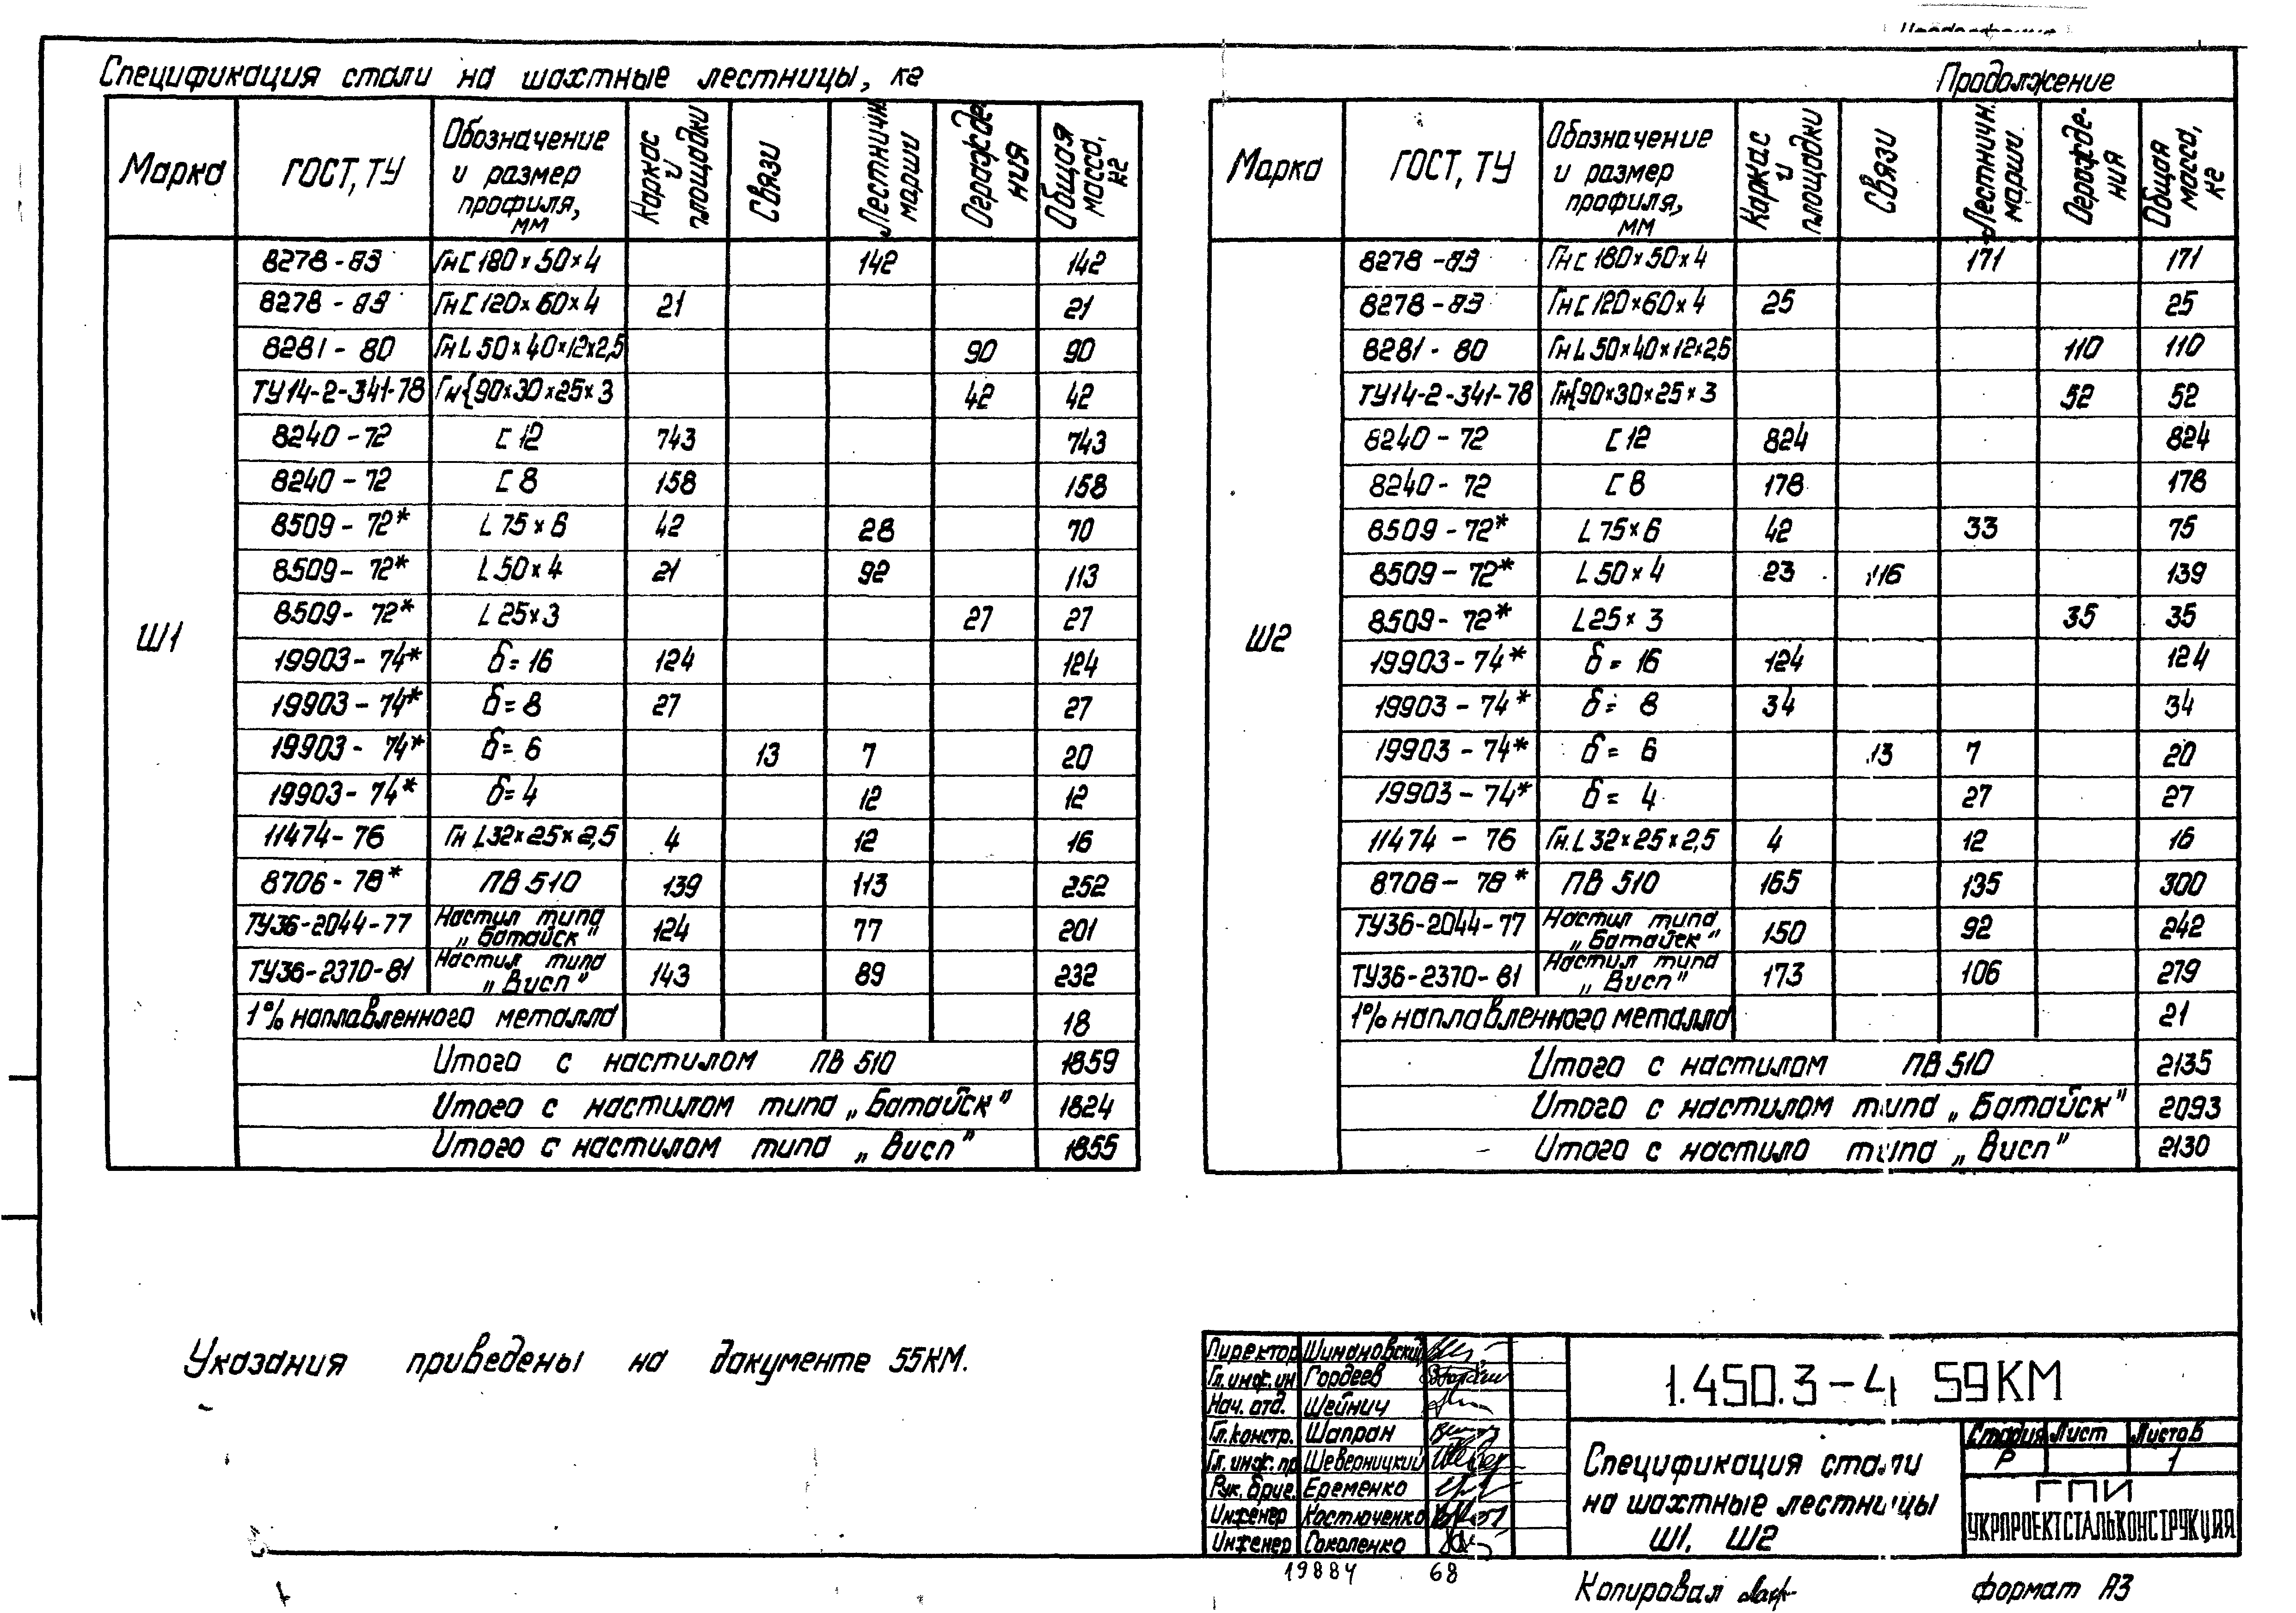 Спецификация стали на шахтные лестницы, кг
Марка ГОСТ, ТУ Обозначение и размер профиля, мм Каркас и площадки Связи Лестничн. марши Огражде- ния Общая масса, кг
Ш1
8278-83 Гн[180×50×4 142 142
8278-83 Гн[120×60×4 21 21
8281-80 ГнL50×40×12×2,5 90 90
ТУ14-2-341-78 Гн{90×30×25×3 42 42
8240-72 [12 743 743
8240-72 [8 158 158
8509-72* L75×6 42 28 70
8509-72* L50×4 21 92 113
8509-72* L25×3 27 27
19903-74* δ=16 124 124
19903-74* δ=8 27 27
19903-74* δ=6 13 7 20
19903-74* δ=4 12 12
11474-76 Гн L32×25×2,5 4 12 16
8706-78* ПВ 510 139 113 252
ТУ36-2044-77 Настил типа „Батайск" 124 77 201
ТУ36-2370-81 Настил типа „Висп" 143 89 232
1% наплавленного металла 18
Итого с настилом ПВ 510 1859
Итого с настилом типа „Батайск" 1824
Итого с настилом типа „Висп" 1855
Продолжение
Марка ГОСТ, ТУ Обозначение и размер профиля, мм Каркас и площадки Связи Лестничн. марши. Огражде- ния Общая масса, кг
Ш2
8278-83 Гн[180×50×4 171 171
8278-83 Гн[120×60×4 25 25
8281-80 ГнL50×40×12×2,5 110 110
ТУ14-2-341-78 Гн{90×30×25×3 52 52
8240-72 [12 824 824
8240-72 [8 178 178
8509-72* L75×6 42 33 75
8509-72* L50×4 23 116 139
8509-72* L25×3 35 35
19903-74* δ=16 124 124
19903-74* δ=8 34 34
19903-74* δ=6 13 7 20
19903-74* δ=4 27 27
11474-76 Гн.L32×25×2,5 4 12 16
8706-78* ПВ 510 165 135 300
ТУ36-2044-77 Настил типа „Батайск" 150 92 242
ТУ36-2370-81 Настил типа „Висп" 173 106 279
1% наплавленного металла 21
Итого с настилом ПВ 510 2135
Итого с настилом типа „Батайск" 2093
Итого с настило типа „Висп" 2130
Указания приведены на документе 55КМ.
Директор Шимановский
Гл. инж. ин Гордеев
Нач. отд. Шейнич
Гл. констр. Шапран
Гл. инж. пр Шеверницкий
Рук. бриг. Еременко
Инженер Костюченко
Инженер Соколенко
1.450.3-4 59КМ
Спецификация стали
на шахтные лестницы
Ш1, Ш2
Стадия Лист Листов
Р 1
ГПИ
УКРПРОЕКТСТАЛЬКОНСТРУКЦИЯ
19884 68
Копировал
формат А3